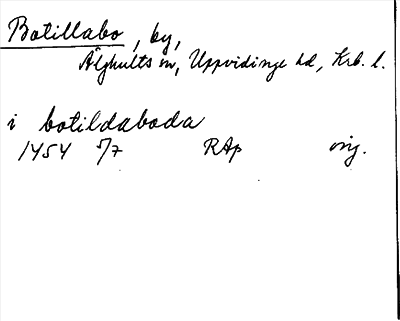 Botillabo, by,
Älghults sn, Uppvidinge hd, Krb. l.
i botildaboda
1454 5/7 RAp orig.